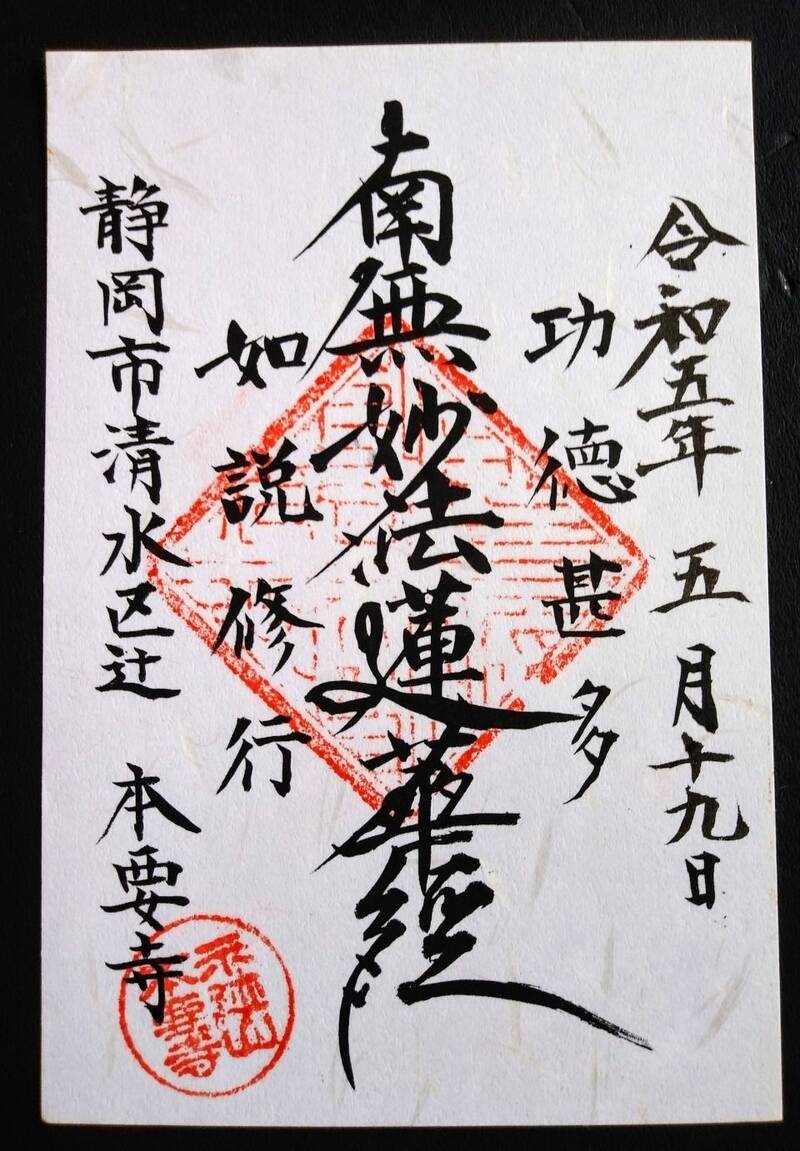 令和五年 五月十九日
功徳甚多
南無妙法蓮華経
如説修行
静岡市清水区辻 本要寺
本要寺